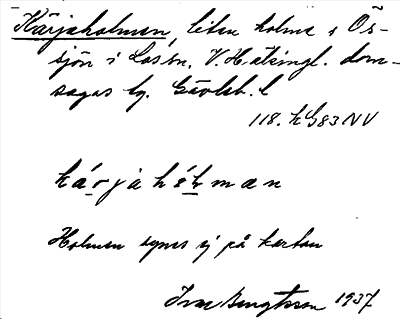 Kärjaholmen, liten holme i Ös-
sjön i Los sn. V. Hälsingl. dom-
sagas tg. Gävleb. l
118. h G83 NV
kárjahólman
Holmen synes ej på kartan
Ivar Bengtsson 1937